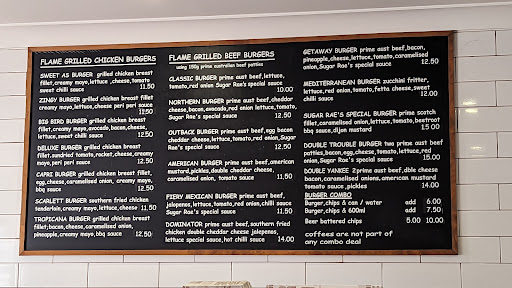 FLAME GRILLED CHICKEN BURGERS
SWEET AS BURGER grilled chicken breast
fillet,creamy mayo,lettuce ,cheese,tomato
sweet chilli sauce 11.50
ZINGY BURGER grilled chicken breast
fillet,creamy mayo,lettuce,cheese peri peri sauce
12.50
BIG BIRD BURGER grilled chicken breast
fillet,creamy mayo,avocado,bacon,cheese,
lettuce,sweet chilli sauce 12.50
DELUXE BURGER grilled chicken breast
fillet.sundried tomato,rocket,cheese,creamy
mayo,peri peri sauce 12.50
CAPRI BURGER grilled chicken breast fillet,
egg,cheese,caramelised onion, creamy mayo,
bbq sauce 12.50
SCARLETT BURGER southern fried chicken
tenderloin,creamy mayo,lettuce,cheese 11.50
TROPICANA BURGER grilled chicken breast
fillet;bacon,cheese,caramelised onion,
pineapple,creamy mayo,bbq sauce 12.50
FLAME GRILLED BEEF BURGERS
using 150g prime australian beef patties
CLASSIC BURGER prime aust beef,lettuce,
tomato,red onion Sugar Rae's special sauce
10.00
NORTHERN BURGER prime aust beef,cheddar
cheese,bacon,avocado,red onion lettuce,tomato,
Sugar Rae's special sauce 12.50
OUTBACK BURGER prime aust beef,egg bacon
cheddar cheese,lettuce,tomato,red onion,Sugar
Rae's special sauce 12.50
AMERICAN BURGER prime aust beef,american
mustard,pickles,double cheddar cheese,
caramelised onion,tomato sauce 11.50
FIERY MEXICAN BURGER prime aust beef,
jalepenos,lettuce,tomato,red onion,chilli sauce
Sugar Rae's special sauce 11.50
DOMINATOR prime aust beef,southern fried
chicken double cheddar cheese jalepenos,
lettuce special sauce,hot chilli sauce 14.00
GETAWAY BURGER prime aust beef,bacon,
pineapple,cheese,lettuce,tomato,caramelised
onion,Sugar Rae's special sauce
12.50
MEDITERRANEAN BURGER zucchini fritter,
lettuce,red onion,tomato,fetta cheese,sweet
chilli sauce 12.00
SUGAR RAE'S SPECIAL BURGER prime scotch
fillet,caramelised onion,lettuce,tomato,beetroot
bbq sauce,dijon mustard 15.00
DOUBLE TROUBLE BURGER two prime aust beef
patties,bacon,egg,cheese,tomato,lettuce,red
onion,Sugar Rae's special sauce 15.00
DOUBLE YANKEE 2 prime aust beef,dble cheese
bacon,caramelised onions,american mustard
tomato sauce,pickles 14.00
BURGER COMBO
Burger,chips & can / water add 6.00
Burger,chips & 600ml add 7.50
Beer battered chips 5.00 10.00
coffees are not part of
any combo deal